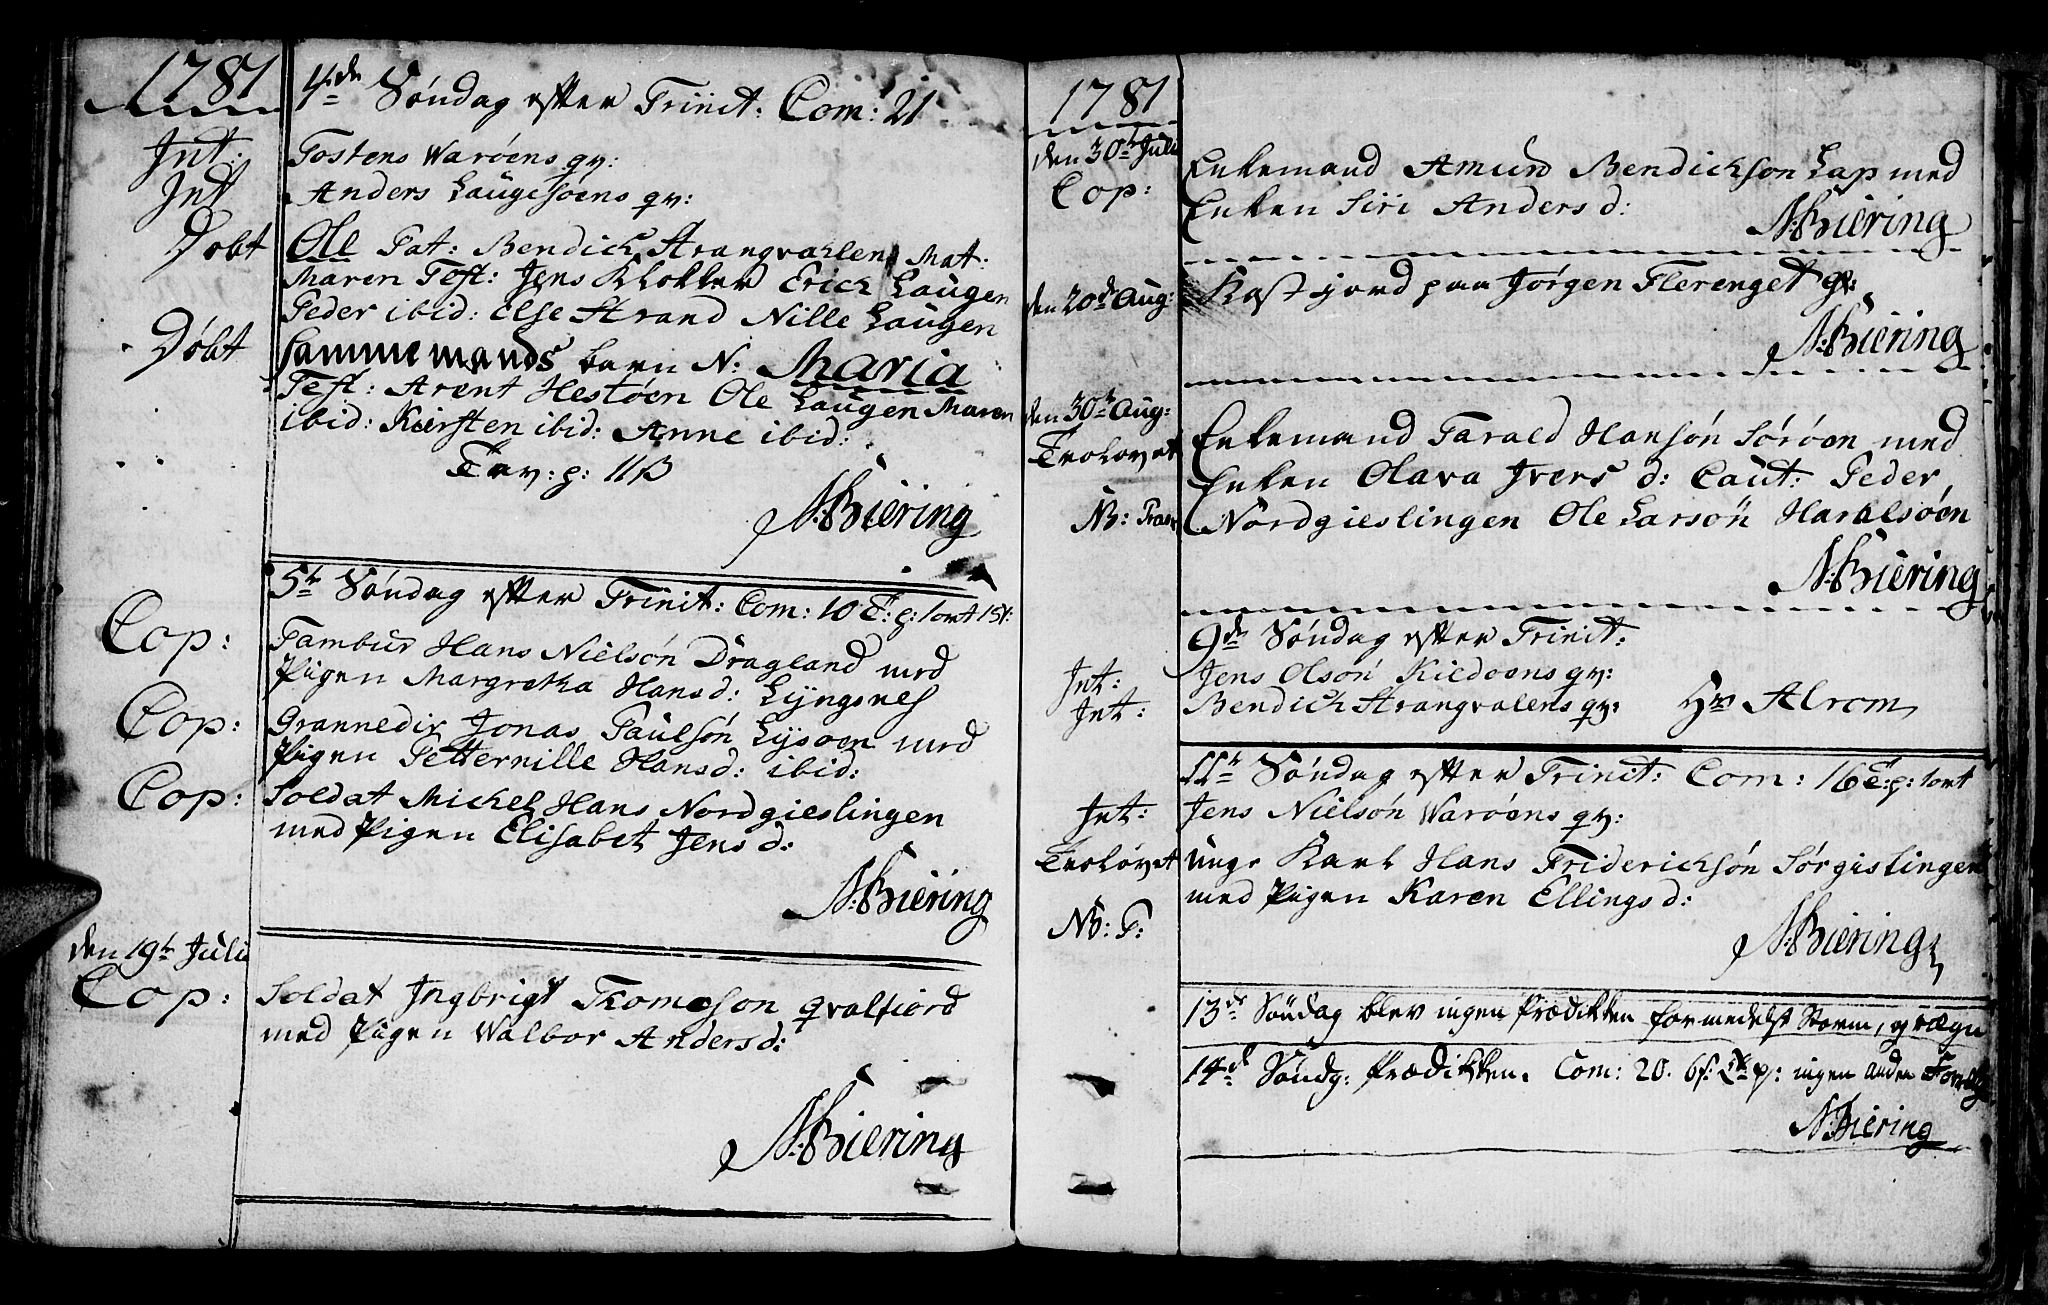 1781
4de Søndag efter Trinit: Com: 21
Int: Tostens Warøens qv:
Int Anders Laugesøens qv:
Døbt Ole Pat: Bendich Strangvahlen Mat:
Maren Test: Jens Klokker Erich Laugen
Peder ibid: Else Strand Nille Laugen
Døbt sammemands barn N: Maria
Test: Arent Hestøen Ole Laugen Maren
ibid: Kiersten ibid: Anne ibid:
Tav: p: 11 β
N: Biering
5te Søndag efter Trinit: Com: 10 T: p: 1 ort 15 β:
Cop: Tambur Hans Nielsøn Dragland med
Pigen Margretha Hans d: Lyngsnes
Cop: Grannedir Jonas Paulsøn Lysøen med
Pigen Petternille Hans d: ibid:
Cop: Soldat Michel Hans Nordgieslingen
med Pigen Elisabet Jens d:
N: Biering
den 19de Juli
Cop: Soldat Ingbrigt Thomeson Qvalfiord
med Pigen Walbor Anders d:
N: Biering
1781
den 30te Juli
Cop: Enkemand Amund Bendichson Lap med
Enken Siri Anders d:
N: Biering
den 20de Aug: Kast jord paa Jørgen Flerenget
N: Biering
den 30te Aug:
Trolovet Enkemand Tarald Hansøn Sørøen med
Enken Olava Ivers d: Caut: Peder
NB: Nordgieslingen Ole Larsøn Haralsøen
N: Biering
9de Søndag efter Trinit:
Int: Jens Olsøn Kildoens qv:
Int: Bendich Strangvalens qv: Hr Alrom
11te Søndag efter Trinit: Com: 16 T: p: 1 ort
Int: Jens Nielsøn Warøens qv:
Trolovet unge Karl Hans Friderichsøn Sørgislingen
med Pigen Karen Ellings d:
NB: T:
N: Biering
13de Søndag blev ingen Prædikken formedelst Storm, og rægn
14de Søndg: Prædikken. Com: 20. p: ingen anden
N: Biering